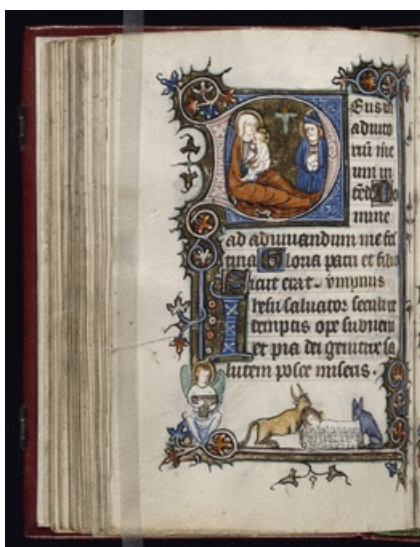 Eus in
adiuto
riū me
um in
tēde Do
mine
ad adiuuandum me fes
tina Gloria patri et filio
Sicut erat. ympnus
Ihesu saluator seculi
temptis ope subueni
et pia dei genitrix sa
lutem posce miseris.